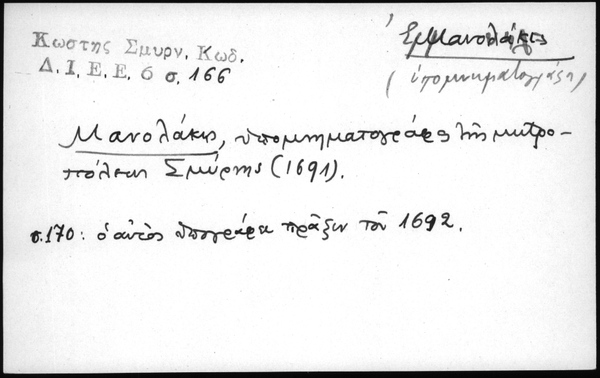 Κωστης Σμυρν. Κωδ.
Δ. Ι. Ε. Ε. 6 σ. 166
Ἐμμανολάκης
(ὑπομνηματογράφος)
Μανολάκης, ὑπομνηματογράφος τῆς μητρο-
πόλεως Σμύρνης (1691).
σ. 170: ὁ αὐτὸς ὑπογράφει πρᾶξιν τοῦ 1692.